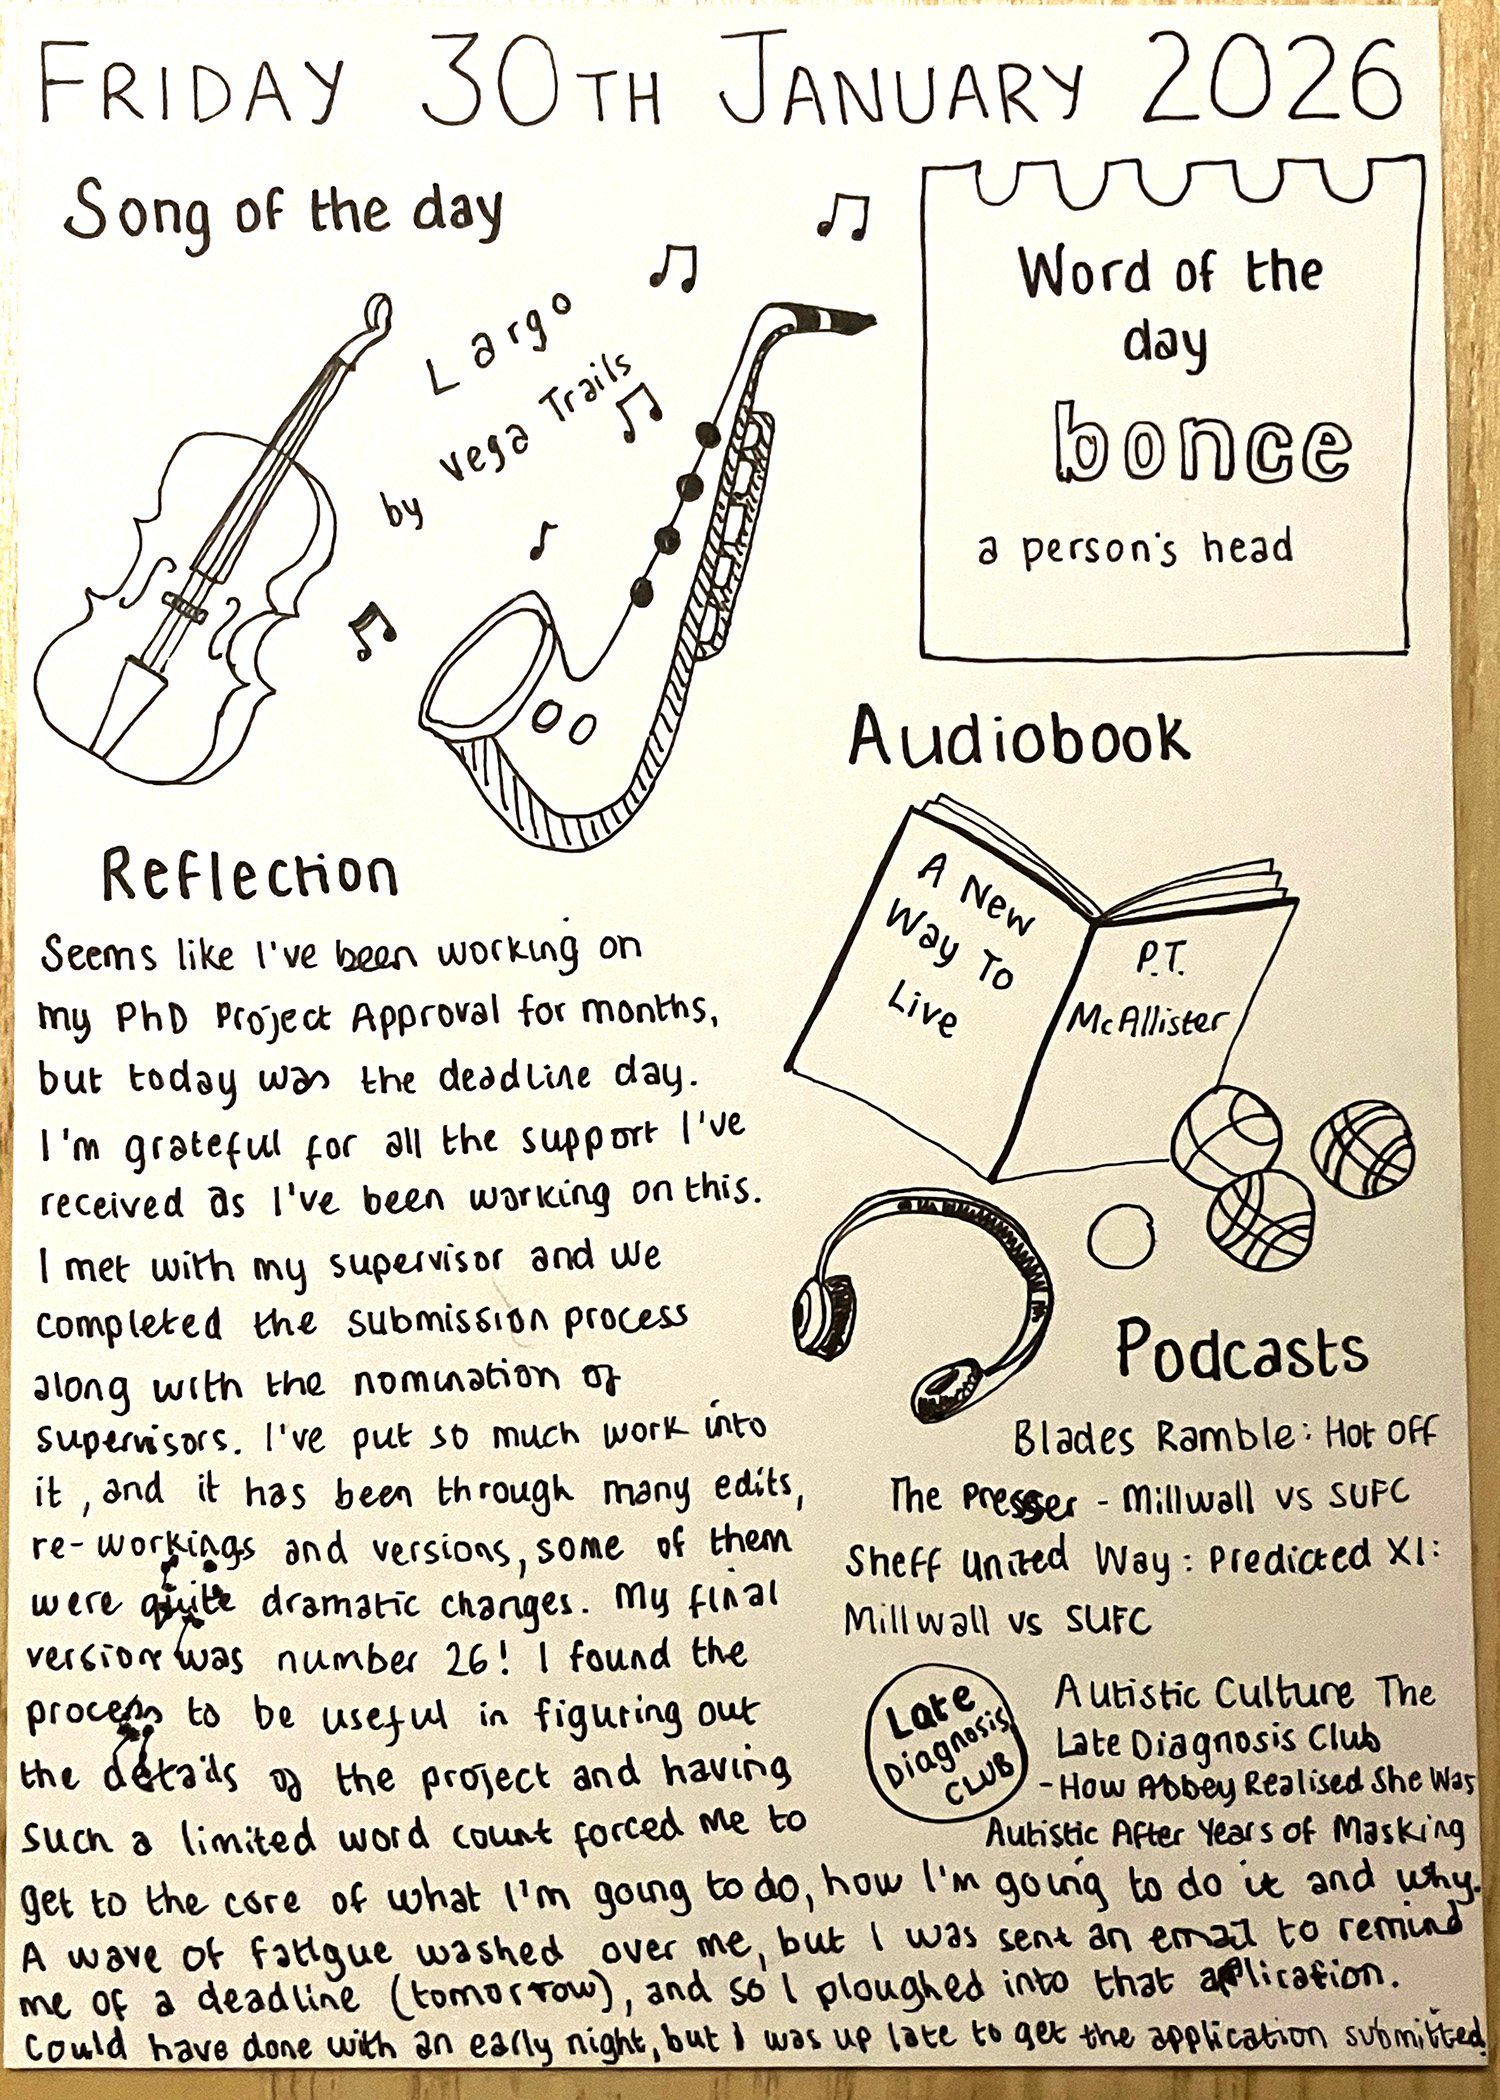 FRIDAY 30TH JANUARY 2026
Song of the day
Largo
by Vega Trails
Word of the
day
bonce
a person's head
Audiobook
A New
Way To
Live
P.T.
McAllister
Reflection
Seems like I've been working on
my PhD Project Approval for months,
but today was the deadline day.
I'm grateful for all the support I've
received as I've been working on this.
I met with my supervisor and we
completed the submission process
along with the nomination of
supervisors. I've put so much work into
it, and it has been through many edits,
re-workings and versions, some of them
were quite dramatic changes. My final
version was number 26! I found the
process to be useful in figuring out
the details of the project and having
such a limited word count forced me to
get to the core of what I'm going to do, how I'm going to do it and why.
A wave of fatigue washed over me, but I was sent an email to remind
me of a deadline (tomorrow), and so I ploughed into that application.
Could have done with an early night, but I was up late to get the application submitted!
Podcasts
Blades Ramble: Hot Off
The Presser - Millwall vs SUFC
Sheff United Way: Predicted XI:
Millwall vs SUFC
Late
Diagnosis
CLUB
Autistic Culture The
Late Diagnosis Club
- How Abbey Realised She Was
Autistic After Years of Masking